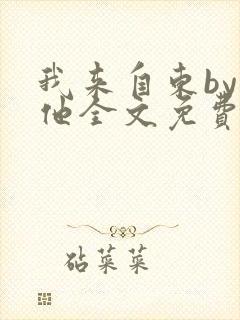 我来自东by
他全文免费
砧菜菜